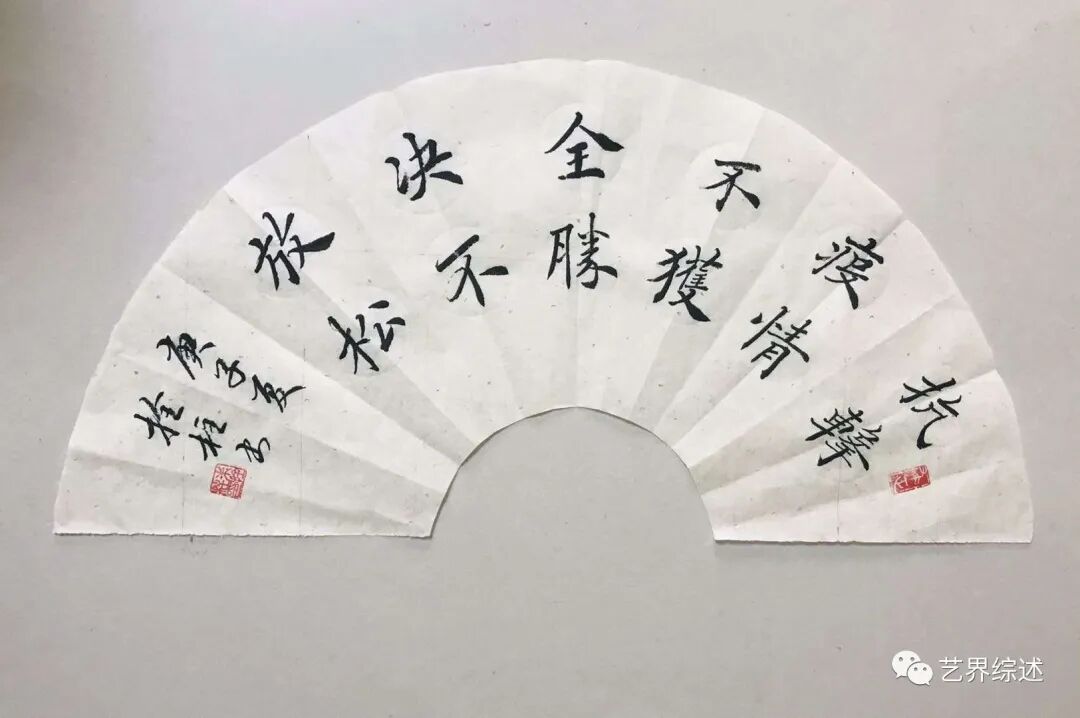 抗擊
疫情
不獲
全勝
決不
放松
庚子夏
栓柱书
艺界综述